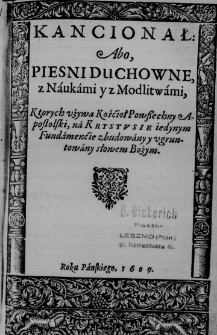 KANCIONAŁ:
Abo,
PIESNI DUCHOWNE,
z Náukámi y z Modlitwámi,
Ktorych vżywa Kośćioł Powſſechny A-
poſtolſki, ná KRYSTVSIE iedynym
Fundámenćie zbudowány y vgrun-
towány słowem Bożym.
D. Bickerich
Pastor
LESZNO (Pozn.)
Roku Páńſkiego, 1609.